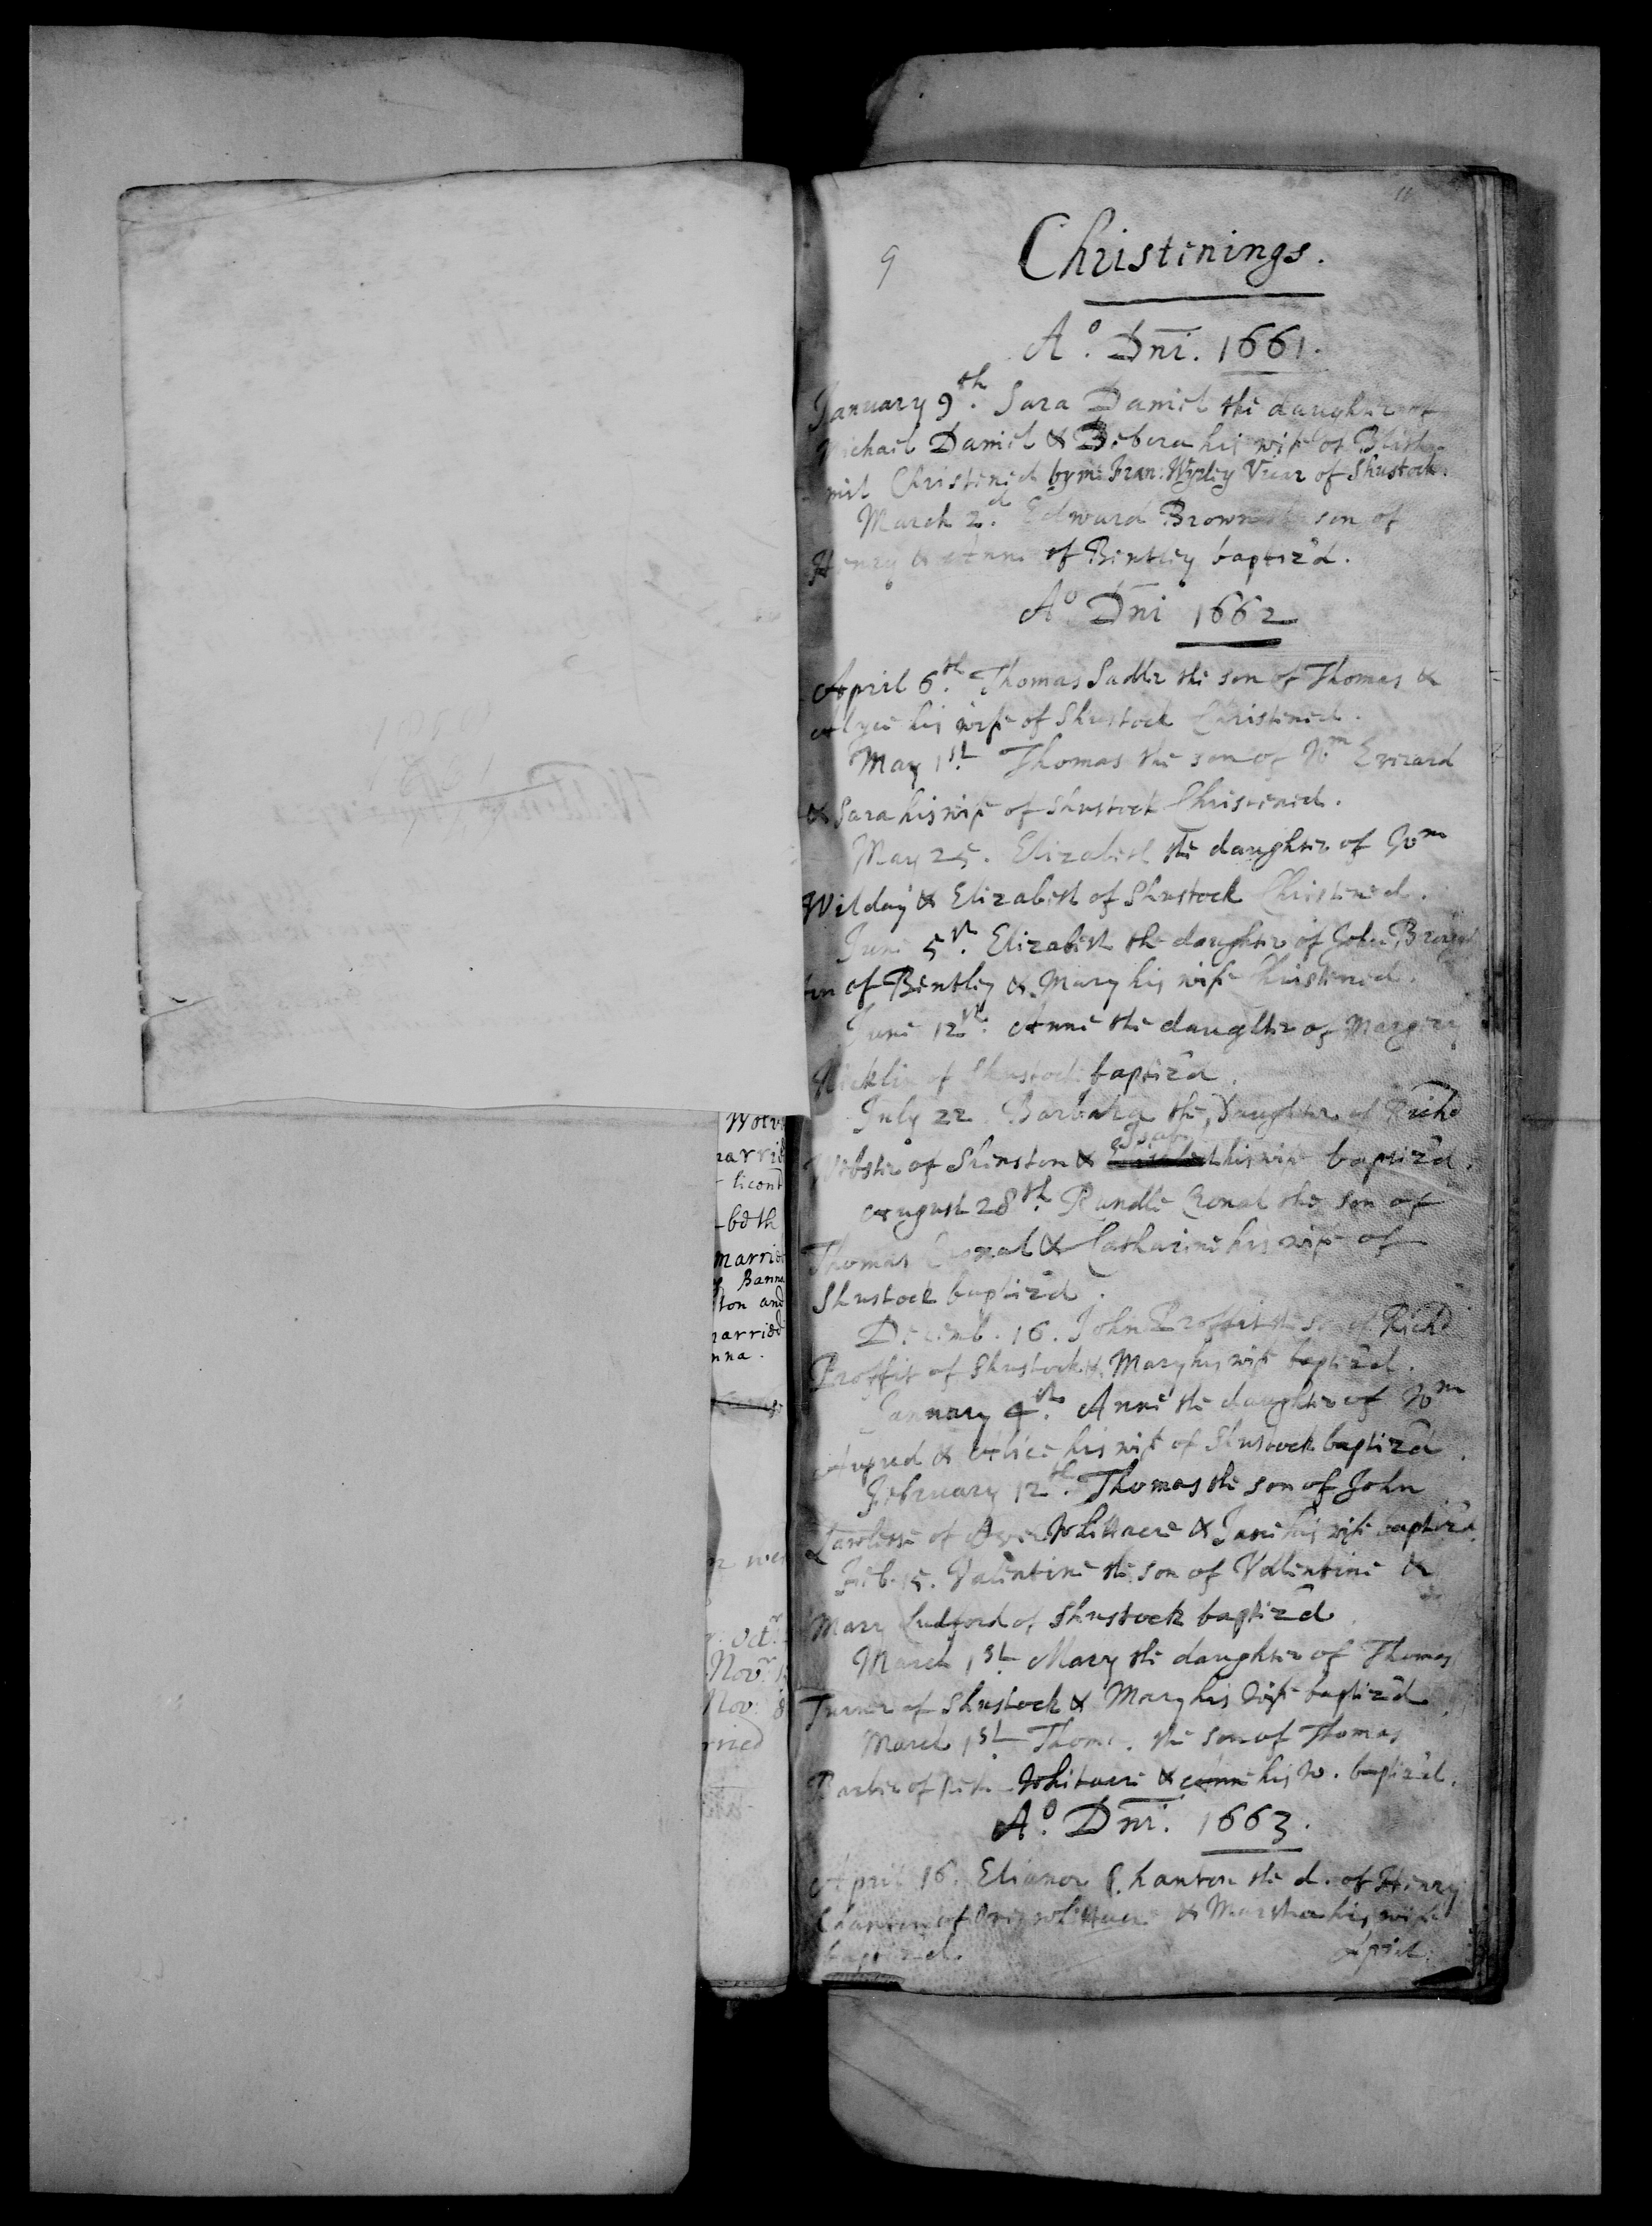 9
Christenings.
Ao. Dni. 1661.
January 9th. Sara Daniel the daughter of
Michael Daniel & Debora his wife of Blith
Christened by me Fran: Wyrley Vicar of Shustock.
March 2d. Edward Brown the son of
Henry & Anne of Bentley baptiz'd.
Ao Dni 1662
April 6th. Thomas Sadler the son of Thomas &
Alyce his wife of Shustock Christened.
May 1st. Thomas the son of Wm Everard
& Sara his wife of Shustock Christened.
May 25. Elizabeth the daughter of Wm
Wilday & Elizabeth of Shustock Christened.
June 5th. Elizabeth the daughter of John
of Bentley & Mary his wife Christened.
June 12th. Anne the daughter of Margery
Nicklin of Shustock baptiz'd.
July 22. Barbara the Daughter of Richd
Webster of Shustock & his wife baptiz'd.
August 28th. Randle the son of
Thomas & Catharine his wife of
Shustock baptized.
Decemb. 16. John Proffit the son of Richd
Proffit of Shustock & Mary his wife baptiz'd.
January 4th. Anne the daughter of Wm
& Alice his wife of Shustock baptiz'd.
February 12th. Thomas the son of John
of Over Whittacre & Jane his wife baptiz'd.
Feb. 15. Valentine the son of Vallentine &
Mary Ludford of Shustock baptiz'd.
March 1st Mary the daughter of Thomas
Turner of Shustock & Mary his wife baptiz'd.
March 1st. Thomas the son of Thomas
of Whitacre & Anne his w. baptiz'd.
Ao. Dni. 1663.
April 16. Elianor the d. of Henry
of Over whittacre & Martha his wife
baptized.
April.
married
-both
married
Bann
ton and
married
nna.
Octr.
Novr.
Nov: 8
rried